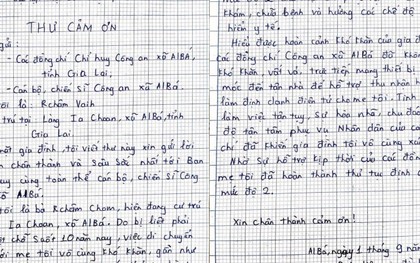 THƯ CẢM ƠN
gửi:
- Các đồng chí Chỉ huy Công an xã AlBá,
tỉnh Gia Lai;
- Cán bộ, chiến sĩ Công an xã AlBá.
tôi là: Rchăm Vaih
trú tại Làng Ia Choan, xã AlBá, tỉnh
Gia Lai.
gia đình, tôi viết thư này xin gửi lời
chân thành và sâu sắc nhất tới Ban
huy cùng toàn thể cán bộ, chiến sĩ Công
xã AlBá.
tôi là bà Rchăm Chom, hiện đang cư trú
Ia Choan, xã AlBá. Do bị liệt phải
chỗ suốt 10 năm nay, việc di chuyển
mẹ tôi vô cùng khó khăn, gần như
khám, chữa bệnh và hưởng các chế độ
hiểm y tế.
Hiểu được hoàn cảnh khó khăn của gia đ
các đồng chí Công an xã AlBá đã không
khó khăn vất vả, trực tiếp mang thiết bị
móc đến tận nhà để hỗ trợ thu nhận h
làm định danh điện tử cho mẹ tôi. Tinh
làm việc tận tụy, sự hòa nhã, chu đáo
độ tận tâm phục vụ Nhân dân của các
chí đã khiến gia đình tôi vô cùng xúc
Nhờ sự hỗ trợ kịp thời của các đồn
mẹ tôi đã hoàn thành thủ tục định d
mức độ 2.
Xin chân thành cảm ơn!
AlBá, ngày 1 tháng 9 năm